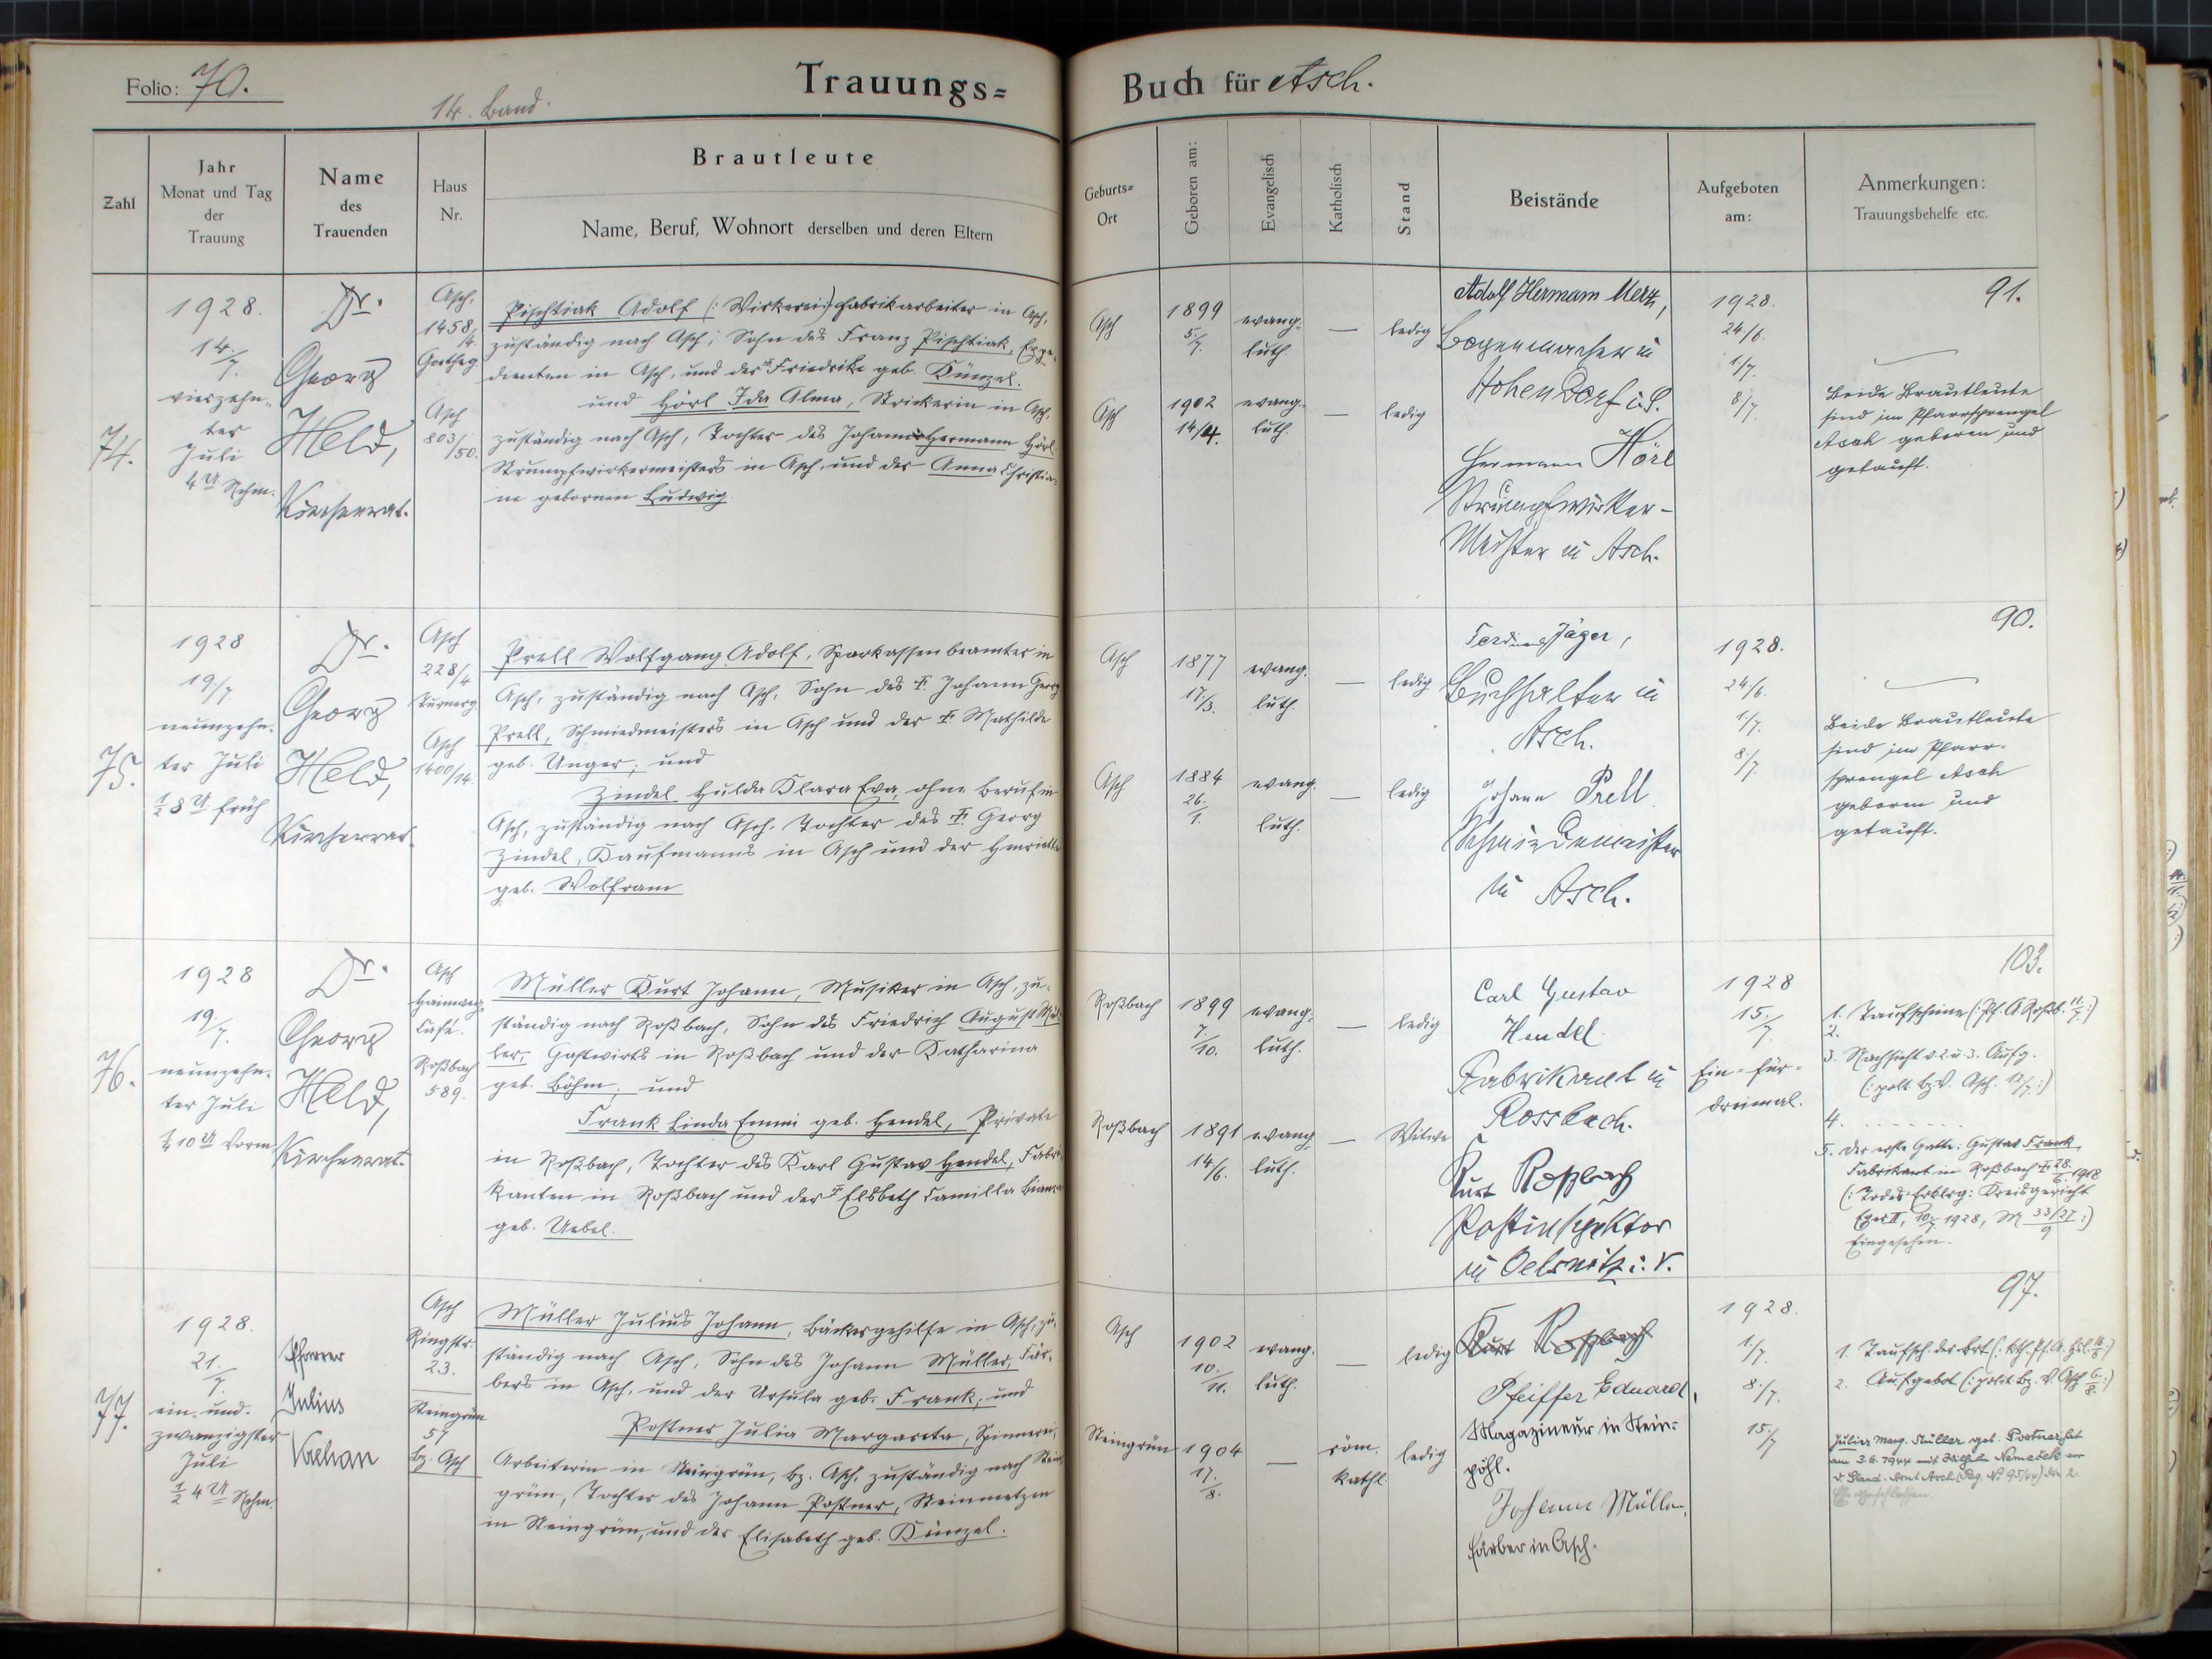 Folio: 70.
14. Band.
Trauungs=
Buch für Asch.
Zahl
Jahr
Monat und Tag
der
Trauung
Name
des
Trauenden
Haus
Nr.
Brautleute
Name, Beruf, Wohnort derselben und deren Eltern
Geburts=
Ort
Geboren am:
Evangelisch
Katholisch
Stand
Beistände
Aufgeboten
am:
Anmerkungen:
Trauungsbehelfe etc.
74.
1928.
14./7.
vierzehn-
ter
Juli
4 U Nchm.
Dr.
Georg
Held,
Kirchenrat.
Asch,
1458/4.
Goetheg.
Asch
803/50.
Pischtiak Adolf (: Wirkerei:) Fabrikarbeiter in Asch,
zuständig nach Asch; Sohn des Franz Pischtiak, Expe-
dienten in Asch, und der Friedrike geb. Künzel.
und Hörl Ida Alma, Strickerin in Asch,
zuständig nach Asch, Tochter des Johann Hermann Hörl
Strumpfwirkermeisters in Asch, und der Anna Christia-
ne gebornen Ludwig.
Asch
1899
5./7.
evang.
luth.
—
ledig
Asch
1902
14/4.
evang.
luth.
—
ledig
Adolf Hermann Merz,
Bogenmacher in
Hohendorf i. S.
Hermann Hörl
Strumpfwirker-
Meister in Asch.
1928.
24/6.
1./7.
8/7.
91.
Beide Brautleute
sind im Pfarrsprengel
Asch geboren und
getauft.
75.
1928
19./7.
neunzehn-
ter Juli
½ 8 U früh
Dr.
Georg
Held,
Kirchenrat.
Asch
228/4
Turnerg.
Asch
1400/14.
Prell Wolfgang Adolf, Sparkassenbeamter in
Asch, zuständig nach Asch, Sohn des † Johann Georg
Prell, Schmiedmeisters in Asch und der † Mathilde
geb. Unger; und
Zindel Hulda Klara Eva, ohne Beruf in
Asch, zuständig nach Asch, Tochter des † Georg
Zindel, Kaufmanns in Asch und der Henriette
geb. Wolfram
Asch
1877
17/3.
evang.
luth.
—
ledig
Asch
1884
26./1.
evang.
luth.
—
ledig
Ferdinand Jäger,
Buchhalter in
Asch.
Johann Prell
Schmiedemeister
in Asch.
1928.
24/6.
1./7.
8./7.
90.
Beide Brautleute
sind im Pfarr-
sprengel Asch
geboren und
getauft.
76.
1928
19./7.
neunzehn-
ter Juli
¼ 10 U Vorm.
Dr.
Georg
Held,
Kirchenrat.
Asch
Hainweg
Café.
Roßbach
589.
Müller Kurt Johann, Musiker in Asch, zu-
ständig nach Roßbach, Sohn des Friedrich August Mül-
ler, Gastwirts in Roßbach und der Katharina
geb. Böhm; und
Frank Linda Emmi geb. Hendel, Private
in Roßbach, Tochter des Karl Gustav Hendel, Fabri-
kanten in Roßbach und der † Elsbeth Camilla Bianca
geb. Uebel.
Roßbach
1899
7./10.
evang.
luth.
—
ledig
Roßbach
1891
14/6.
evang.
luth.
—
Witwe
Carl Gustav
Hendel
Fabrikant in
Rossbach.
Kurt Roßbach
Postinspektor
in Oelsnitz i. V.
1928
15./7.
Ein- für-
dreimal.
103.
1. Taufscheine (: Pf. A. Roßb. 11/7.:)
2.
3. Nachsicht v. 2. u. 3. Aufg.
(: polit. Bz. V. Asch. 12/7.:)
4. . . . . . . .
5. Der erste Gatte: Gustav Frank
Fabrikant in Roßbach † 28./6. 1918
(: Todes-Erklrg: Kreisgericht
Eger II, 10./7. 1928, M 33/27/9 :)
Eingesehen.
77.
1928.
21./7.
ein- und-
zwanzigster
Juli
½ 4 U Nchm.
Pfarrer
Julius
Asch
Ringstr.
23.
Steingrün
57
Bz. Asch
Müller Julius Johann, Bäckergehilfe in Asch, zu-
ständig nach Asch, Sohn des Johann Müller, Fär-
bers in Asch, und der Ursula geb. Frank; und
Postner Julia Margareta, Spinnerei-
Arbeiterin in Steingrün, Bz. Asch, zuständig nach Stein-
grün, Tochter des Johann Postner, Steinmetzen
in Steingrün, und der Elisabeth geb. Künzel.
Asch
1902
10./11.
evang.
luth.
—
ledig
Steingrün
1904
17./8.
—
röm.
kathl.
ledig
Kurt Roßbach
Pfeiffer Eduard,
Magazineur in Stein-
pöhl.
Johann Müller,
Färber in Asch.
1928.
1/7.
8./7.
15./7
97.
1. Taufsch. der Brt.
2. Aufgebot (: polit. Bz. V. Asch 6/8:)
Julia Marg. Müller geb. Postner hat
am 3.6.1944 mit